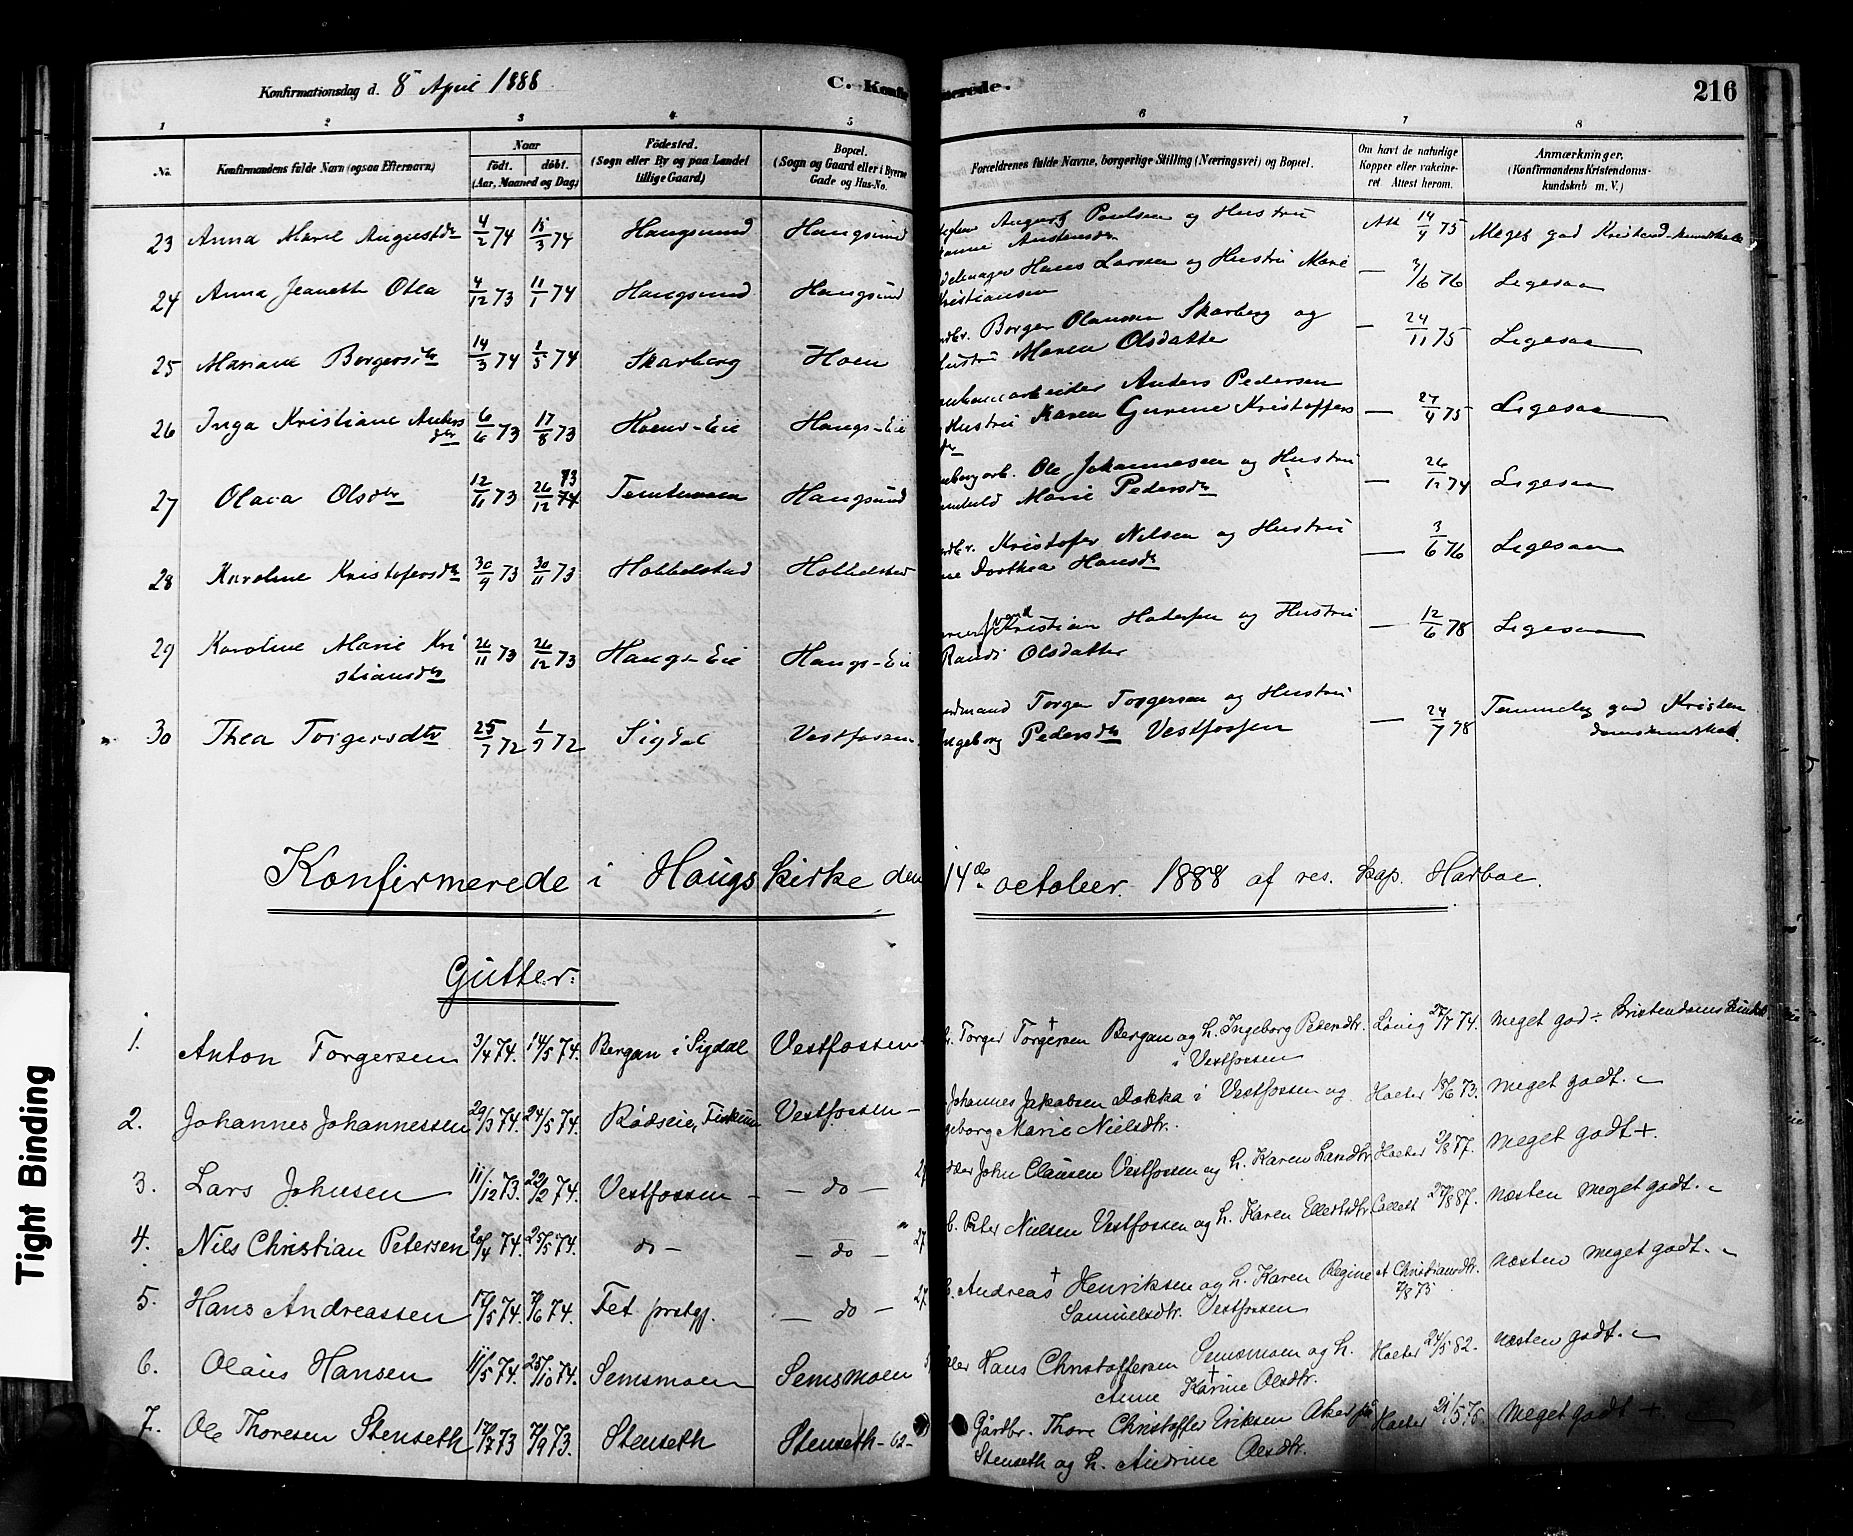 Konfirmationsdag d. 8 April 1888
C. Konfir
merede.
216
1 2 3 4 5 6 7 8
No.
Konfirmandens fulde Navn (ogsaa Efternavn)
Naar
födt. döbt.
(Aar, Maaned og Dag)
Födested.
(Sogn eller By og paa Landet
tillige Gaard)
Bopæl.
(Sogn og Gaard eller i Byerne
Gade og Hus-No.
Forældrenes fulde Navne, borgerlige Stilling (Næringsvei) og Bopæl.
Om havt de naturlige
Kopper eller vakcine-
ret Attest herom.
Anmærkninger,
(Konfirmandens Kristendoms-
kundskab m. V.)
23 Anna Marie Augustdtr 4/2 74 15/3 74 Haugsund Haugsund August Paulsen og Hustru Att 14/9 75 Meget god Kristend.kundskab
24 Anna Jeanette Otea 4/12 73 11/1 74 Haugsund Haugsund Hans Larsen og Hustru Marie — 3/6 76 Ligesaa
Kristiansen
25 Mariane Borgersdtr 14/3 74 1/5 74 Skarberg Hoen Borger Olaussen Skarberg og — 24/11 75 Ligesaa
Hustru Maren Olsdatter
26 Inga Kristiane Anders 6/6 73 17/8 73 Hoens-Eie Haugs-Eie Anders Pedersen — 27/9 75 Ligesaa
dtr Hustru Karen Gurine Kristoffers
dtr
27 Olava Olsdtr 12/11 73 26/12 73 74 Haugsund Ole Johannesen og Hustru — 26/12 74 Ligesaa
Marie Pedersdtr
28 Karoline Kristofersdtr 30/9 73 30/11 73 Hobbelstad Hobbelstad Kristofer Nilsen og Hustru — 3/6 76 Ligesaa
Dorthea Hansdtr
29 Karoline Marie Kri 26/11 73 26/12 73 Haugs-Eie Haugs-Eie Kristian Halvorsen og Hustru — 12/6 78 Ligesaa
stiansdtr Randi Olsdatter
30 Thea Torgersdtr 25/7 72 1/9 72 Sigdal Vestfossen Torger Torgersen og Hustru — 24/7 78 Temmelig god Kristen
Ingeborg Pedersdtr Vestfossen domskundskab.
Konfirmerede i Haugs kirke den 14de october 1888 af res. kap. Harboe.
Gutter:
1. Anton Torgersen 3/4 74. 14/5 74. Bergan i Sigdal Vestfossen Torger Torgersen Bergan og h. Ingeborg Pedersdtr. Lövig 24/7 74. Meget god ÷ Kristendomskundsk
i Vestfossen
2. Johannes Johannessen 29/3 74. 24/5 74. Rödseie, Fiskum Vestfossen — Johannes Jakobsen Dokka i Vestfossen og Hoeter 18/6 73. Meget godt. ~
Ingeborg Marie Nielsdtr.
3. Lars Johnsen 11/12 73. 22/2 74. Vestfossen — do — John Clausen Vestfossen og h. Karen Larsdtr Hoeter 2/8 77. Meget godt +.
4. Nils Christian Petersen 20/4 74. 25/5 74. do — — do — Peter Nielsen Vestfossen og h. Karen Ellertsdtr Collett 27/8 87. næsten meget godt. ~
5. Hans Andreassen 17/5 74. 7/6 74. Fet prstgj. — do — Andreas + Henriksen og h. Karen Regine A Christiansdtr. næsten meget godt. ~
Samuelsdtr. Vestfossen 7/8 75
6. Olaus Hansen 11/5 74. 25/10 74. Semsmoen Semsmoen Hans Christoffersen Semsmoen og h. Hoeter 24/5 82. næsten godt. ~
Anne Karine Olsdtr.
7. Ole Thoresen Stenseth 17/7 73 7/9 73. Stenseth Stenseth - 62 - Gårdbr. Thore Christoffer Eriksen Aker på Hoeter 21/5 75. Meget godt +
Stenseth og h. Andrine Olsdtr.
Tight Binding